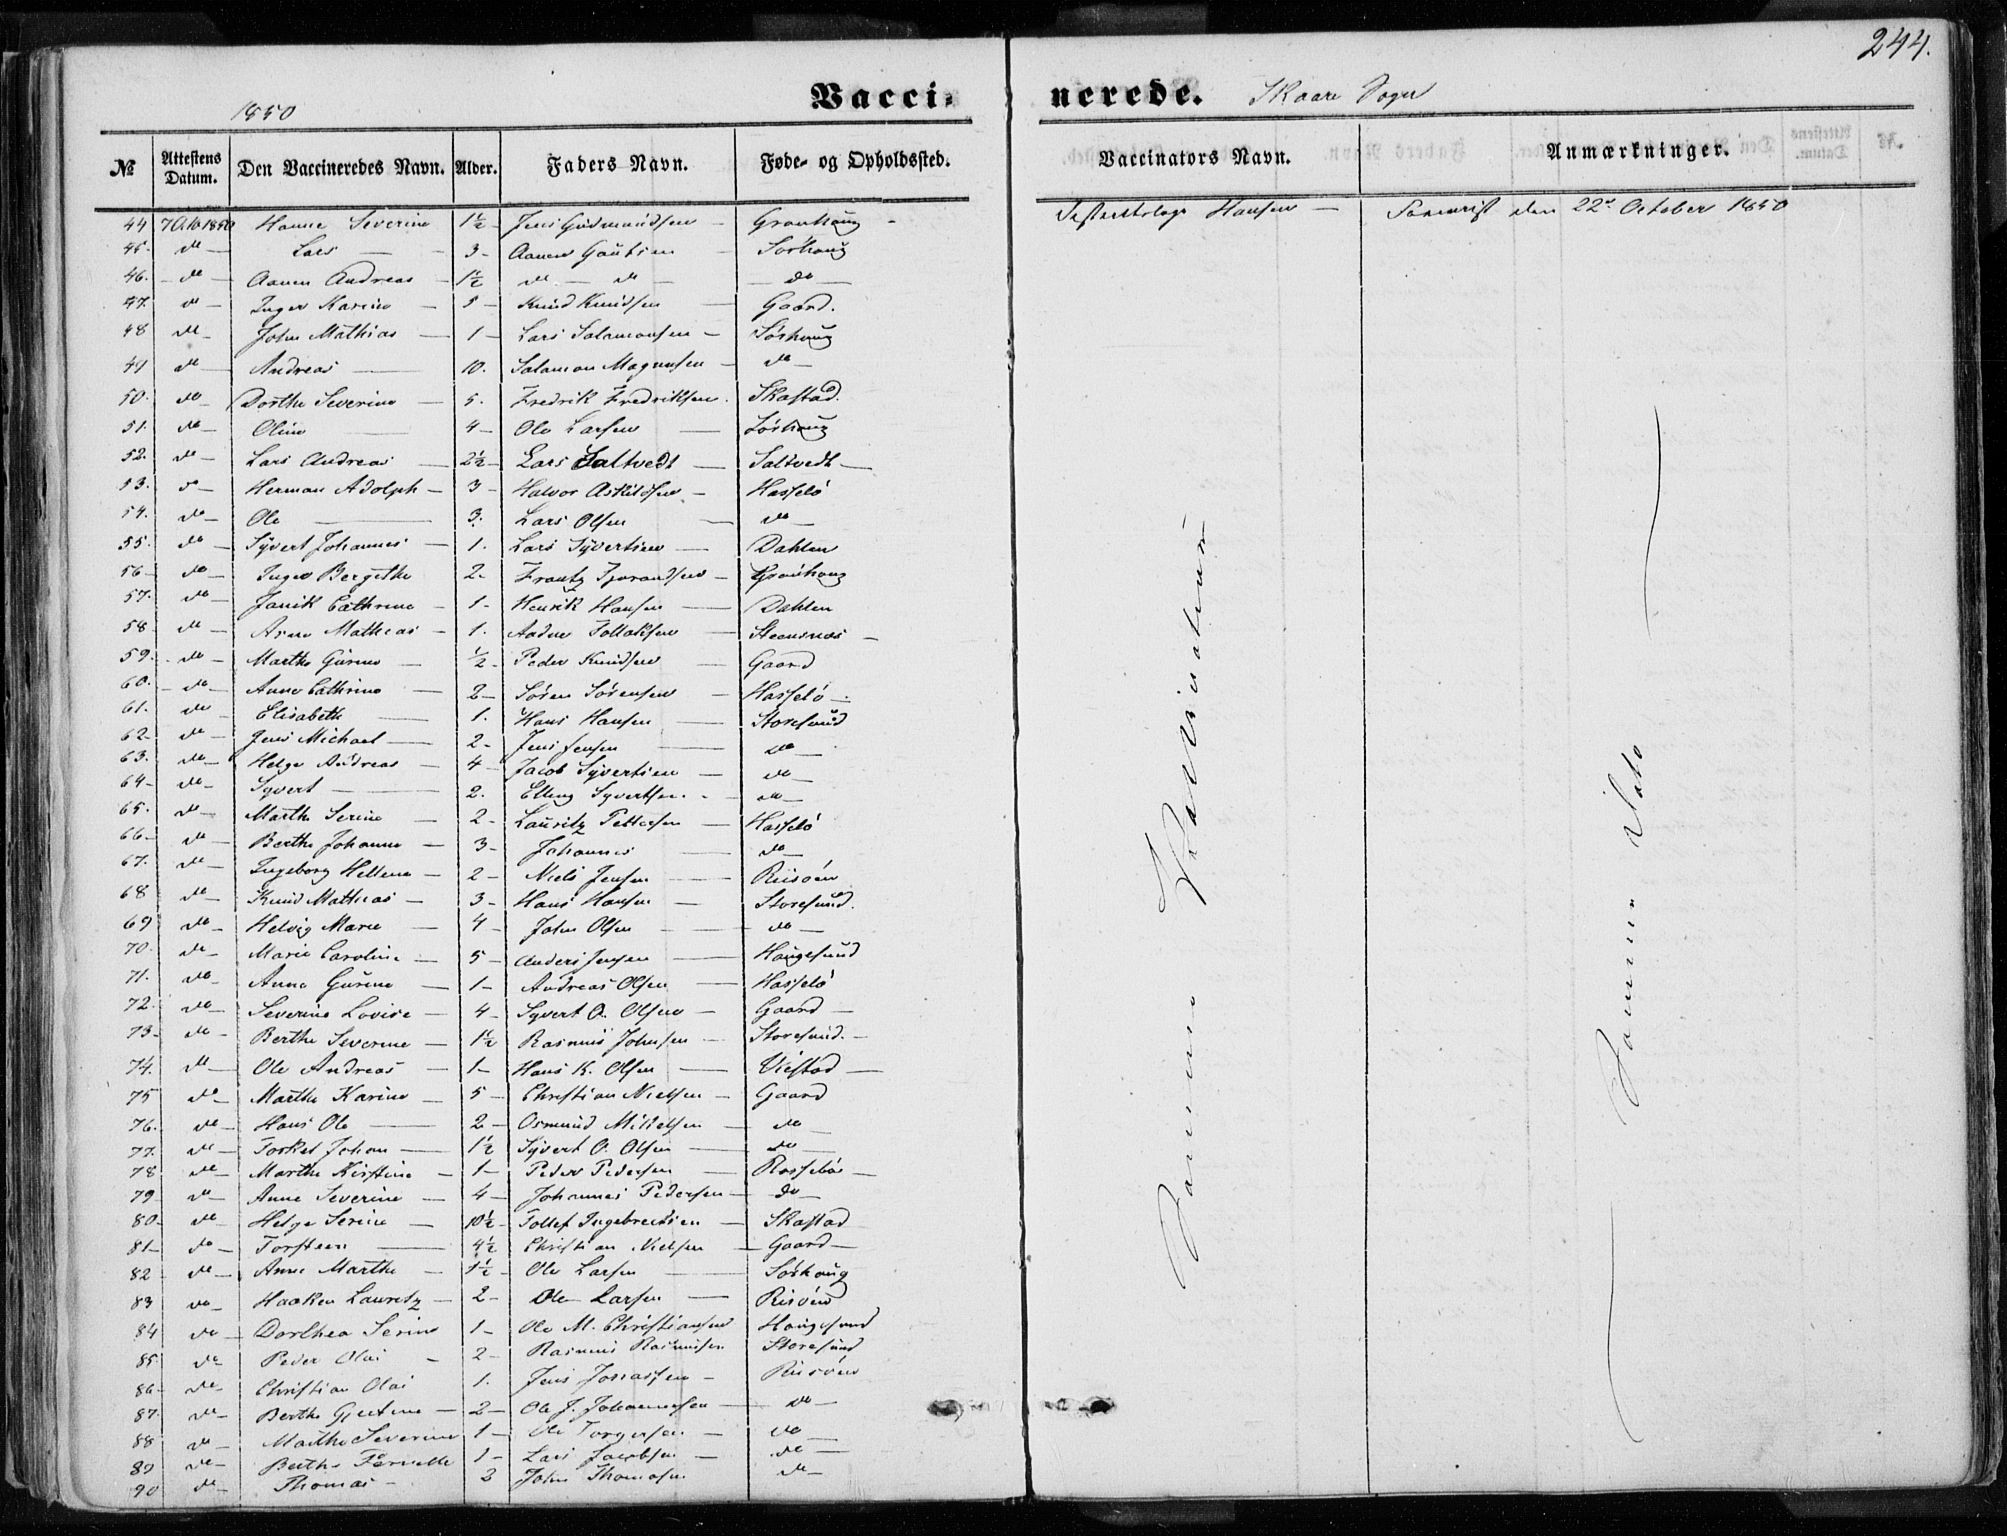 244.
1850
Vaccinerede. Skaare Sogn
№ Attestens Datum. Den Vaccineredes Navn. Alder. Faders Navn. Føde- og Opholdssted. Vaccinators Navn. Anmærkninger.
44 7 Octb 1850 Hanne Severine 1½ Jens Gudmundsen Grønhaug Hansen den 22de October 1850
45. do Lars 3 Gautsen Sørhaug
46. do Andreas 1½ do do do
47. do Inger Karine 5 Knud Knudsen Gaard.
48 do John Mathias 1 Lars Salamonsen Sørhaug
49 do Andreas 10. Salamon Magnusen do
50. do Dorthe Severine 5. Fredrik Fredriksen Skastad.
51. do Oline 4 Ole Larsen Sørhaug
52. do Lars Andreas 2½ Lars Saltvedt Saltvedt
53. do Herman Adolph 3 Halvor Askildsen Hasselö
54. do Ole 3. Lars Olsen do
55. do Syvert Johannes 1. Lars Syvertsen Dahlen
56 do Inger Bergithe 2. Frantz Grønhaug
57. do Cathrine 1 Henrik Hansen Dahlen
58 do Arne Mathias 1. Aadne Tollaksen Steensnæs
59. do Marthe Gurine ½ Peder Knudsen Gaard
60. do Anne Cathrine 2 Sören Sörensen Hasselö
61. do Elisabeth 1. Hans Hansen Storesund
62 do Jens Michael 2 Jens Jensen do
63. do Helge Andreas 4 Jacob Syvertsen do
64 do Syvert 2. Elling Syvertsen do
65. do Marthe Serine 2 Lauritz Pettersen Hasselö
66 do Berthe Johanne 3 Johannes do
67. do Ingeborg Hellene 2 Niels Jensen Risöen
68 do Knud Mathias 3 Hans Hansen Storesund.
69 do Helvig Marie 4 John Olsen do
70. do Marie Caroline 5 Anders Jensen Haugesund
71. do Anna Gurine 1 Andreas Olsen Hasselö
72. do Severine Lovise 4 Syvert O. Olsen Gaard
73 do Berthe Severine 1½ Rasmus Johnsen Storesund.
74. do Ole Andreas 1 Hans K. Olsen Viestad
75 do Marthe Karine 5 Christian Nielsen Gaard
76. do Hans Ole 2 Osmund Mikkelsen do
77. do Torkel Johan 1½ Syvert O. Olsen do
78 do Marthe Kirstine 1 Peder Pedersen Rossebö
79 do Anne Severine 4 Johannes Pedersen do
80 do Helge Serine 10½ Tollef Ingebrectsen Skastad
81 do Torsteen 4½ Christian Nielsen Gaard
82 do Anne Marthe 1½ Ole Larsen Sørhaug
83 do Haaken Lauretz 2 Ole Larsen Risöen
84 do Dorthea Serine 1 Ole M. Christiansen Haugesund
85. do Peder Olai 2 Rasmus Rasmusen Storesund
86 do Christian Olai 1. Jens Jonassen Risöen
87. do Berthe Gjertine 2 Ole J. Johannesen do
88 do Marthe Severine 1 Ole Torgersen do
89 do Berthe 1 Lars Jacobsen do
90 do Thomas 2 John Thomasen do
Samme Vaccinateur
Samme Dato